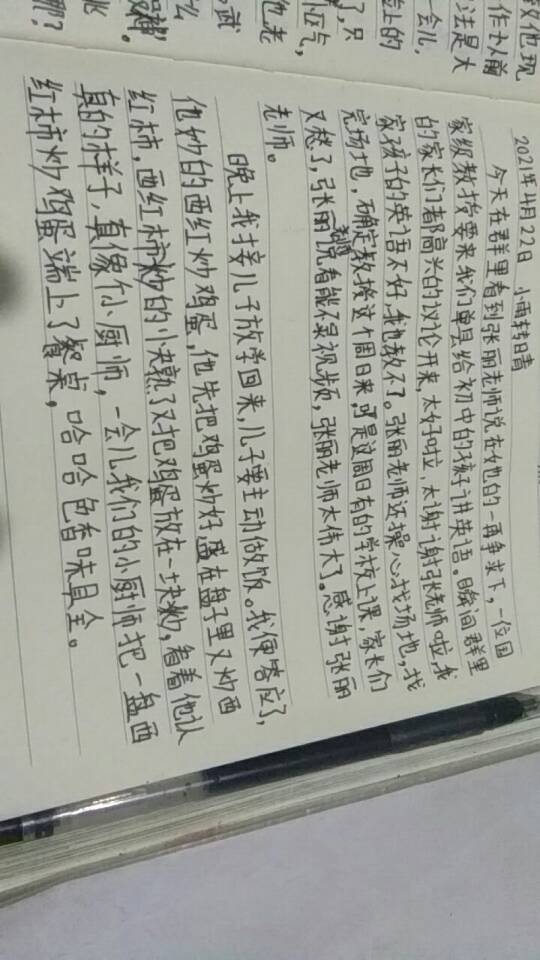 2021年4月22日 小雨转日青
今天在群里看到张丽老师说在她的一再争求下,一位国
家级教授要来我们单县给初中的孩子讲英语。瞬间群里
的家长们都高兴的议论开来,太好啦,太谢谢张老师啦,我
家孩子的英语不好,我也教不了。张丽老师还操心找场地,找
完场地,确定教授这个周日来,可是这周日有的学校上课,家长们
又愁了,张丽说看能不录视频,张丽老师太伟大了。感谢张丽
老师。
晚上我接儿子放学回来,儿子要主动做饭。我便答应了,
他炒的西红炒鸡蛋,他先把鸡蛋炒好盛在盘子里又炒西
红柿,西红柿炒的小块熟了又把鸡蛋放在一块炒,看着他认
真的样子,真像个小厨师,一会儿我们的小厨师把一盘西
红柿炒鸡蛋端上了餐桌,哈哈色香味具全。